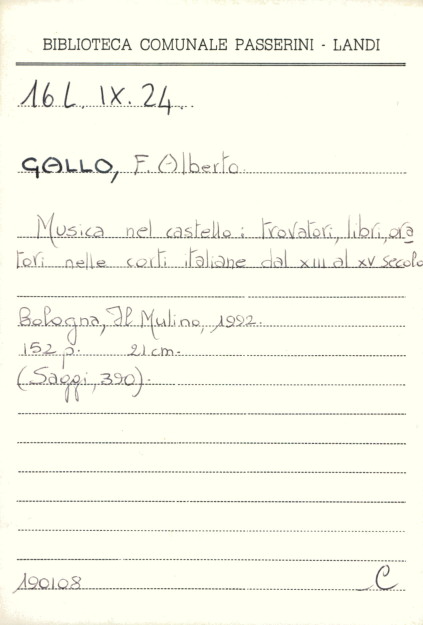 BIBLIOTECA COMUNALE PASSERINI - LANDI
16 L. IX. 24.
GALLO, F. Alberto.
Musica nel castello : trovatori, libri, ora
tori nelle corti italiane dal XIII al XV secolo
Bologna, Il Mulino, 1992.
152 p. 21 cm.
(Saggi, 390).
190108 C